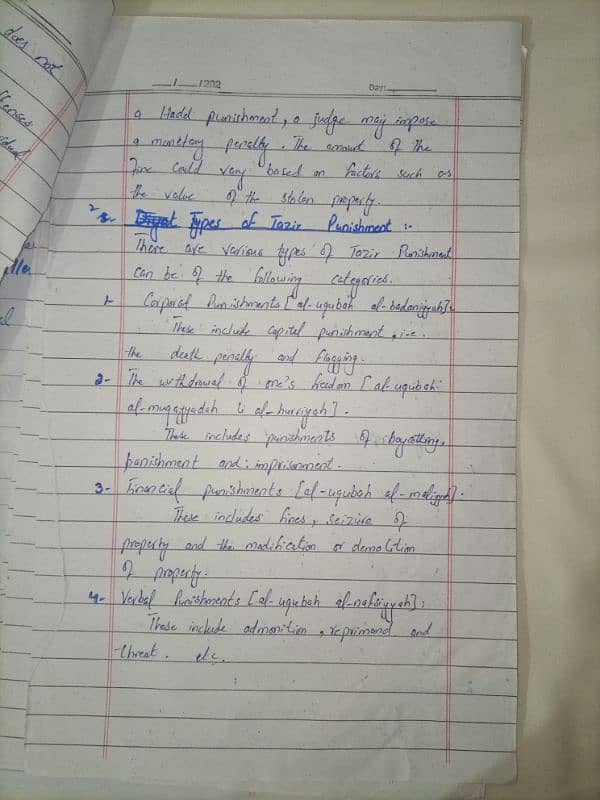 does not
__/__/202
Day:
a Hadd punishment, a judge may impose
a monetary penalty. The amount of the
fine could vary based on factors such as
the value of the stolen property.
2- Types of Tazir Punishment :-
There are various types of Tazir Punishment
can be of the following categories.
1- Corporal Punishments [al-uqubah al-badaniyyah]:
These include capital punishment, i.e.
the death penalty and flogging.
2- The withdrawal of one's freedom [al-uqubah
al-muqayyadah li al-hurriyah].
These includes punishments of boycotting,
banishment and imprisonment.
3- Financial punishments [al-uqubah al-maliyyah].
These includes fines, seizure of
property and the modification or demolition
of property.
4- Verbal Punishments [al-uqubah al-nafsiyyah]:
These include admonition, reprimand and
threat. etc.